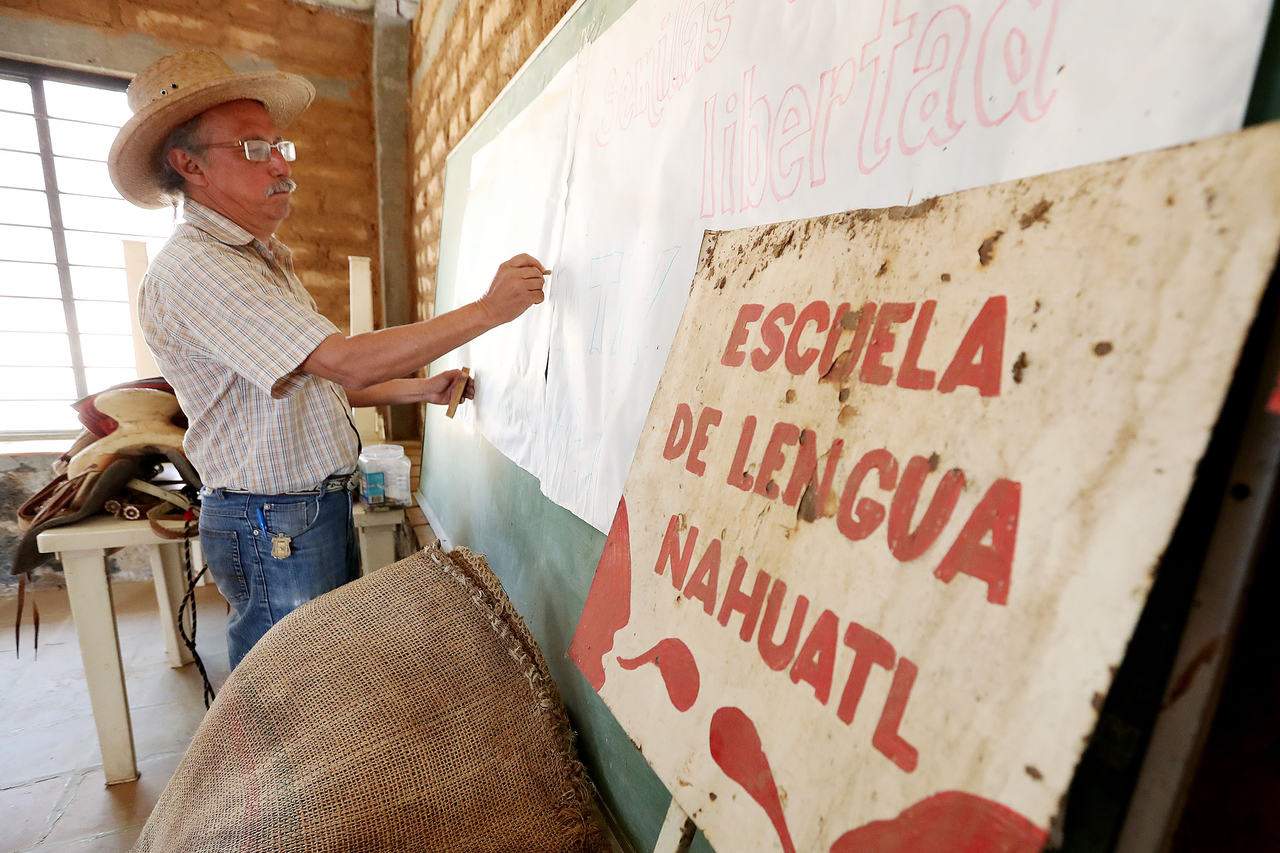 Semillas
libertad
ESCUELA
DE LENGUA
NAHUATL